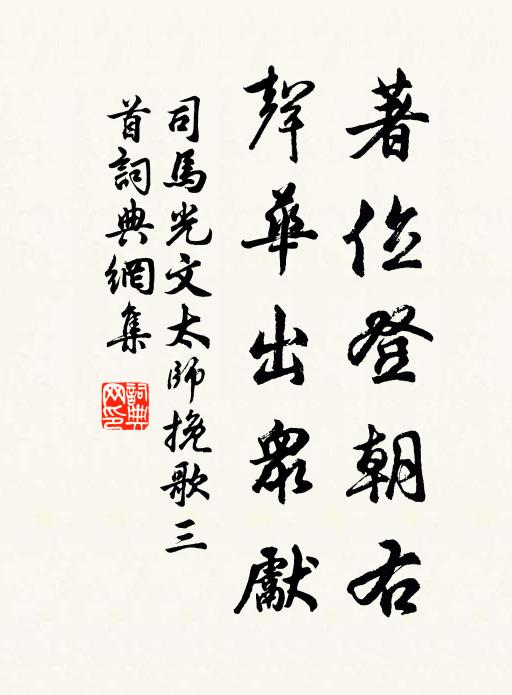 著位登朝右
聲華出眾獻
司馬光文太師挽歌三
首詞典網集
詞典網印